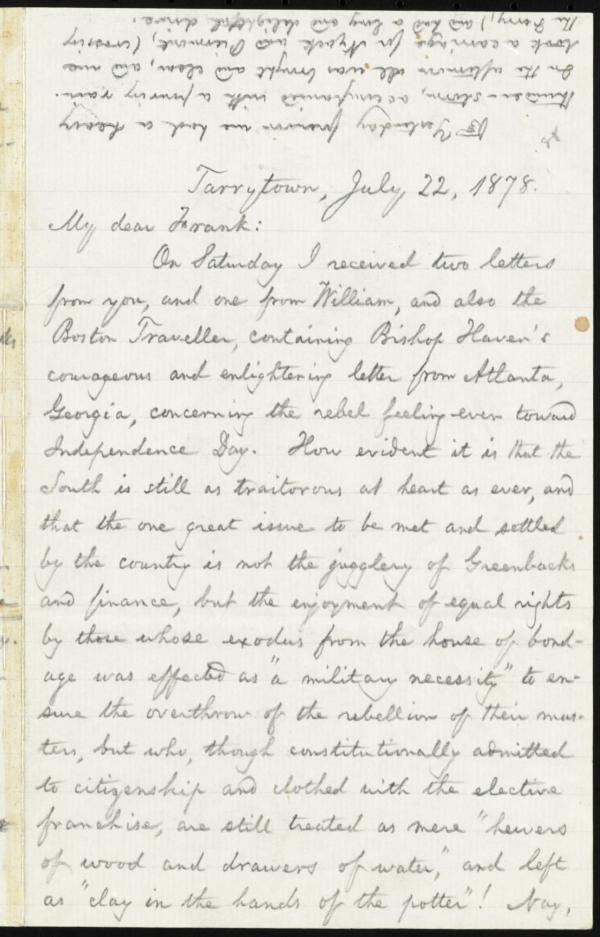 Tarrytown, July 22, 1878.
My dear Frank:
On Saturday I received two letters
from you, and one from William, and also the
Boston Traveller, containing Bishop Haven's
courageous and enlightening letter from Atlanta,
Georgia, concerning the rebel feeling even toward
Independence Day. How evident it is that the
South is still as traitorous at heart as ever, and
that the one great issue to be met and settled
by the country is not the jugglery of Greenbacks
and finance, but the enjoyment of equal rights
by those whose exodus from the house of bond-
age was effected as "a military necessity" to en-
sure the overthrow of the rebellion of their mas-
ters, but who, though constitutionally admitted
to citizenship and clothed with the elective
franchise, are still treated as mere "hewers
of wood and drawers of water," and left
as "clay in the hands of the potter"! Nay,
Yesterday forenoon we had a heavy
thunder-storm, accompanied with a pouring rain.
In the afternoon all was bright and clear, and we
took a carriage for Nyack via Piermont, (crossing
the ferry,) and had a long and delightful drive.